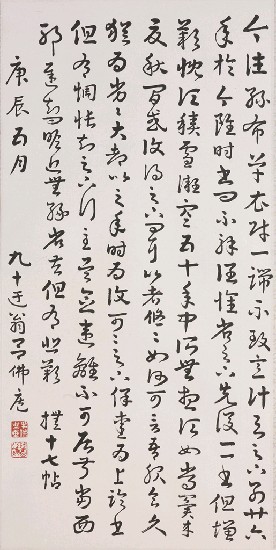 今往絲布單衣財一端示致意計與足下別廿六
年於今雖時書問不解闊懷省足下先後二書但增
歎慨頃積雪凝寒五十年中所無想頃如常冀來
夏秋間或復得足下問耳比者悠悠如何可言吾服食久
猶為劣劣大都比之年時為復可可足下保愛為上臨書
但有惆悵知足下行至吳念違離不可居叔當西
耶遲知問瞻近無緣省告但有悲歎 橅十七帖
庚辰五月 九十迂翁呂佛庭